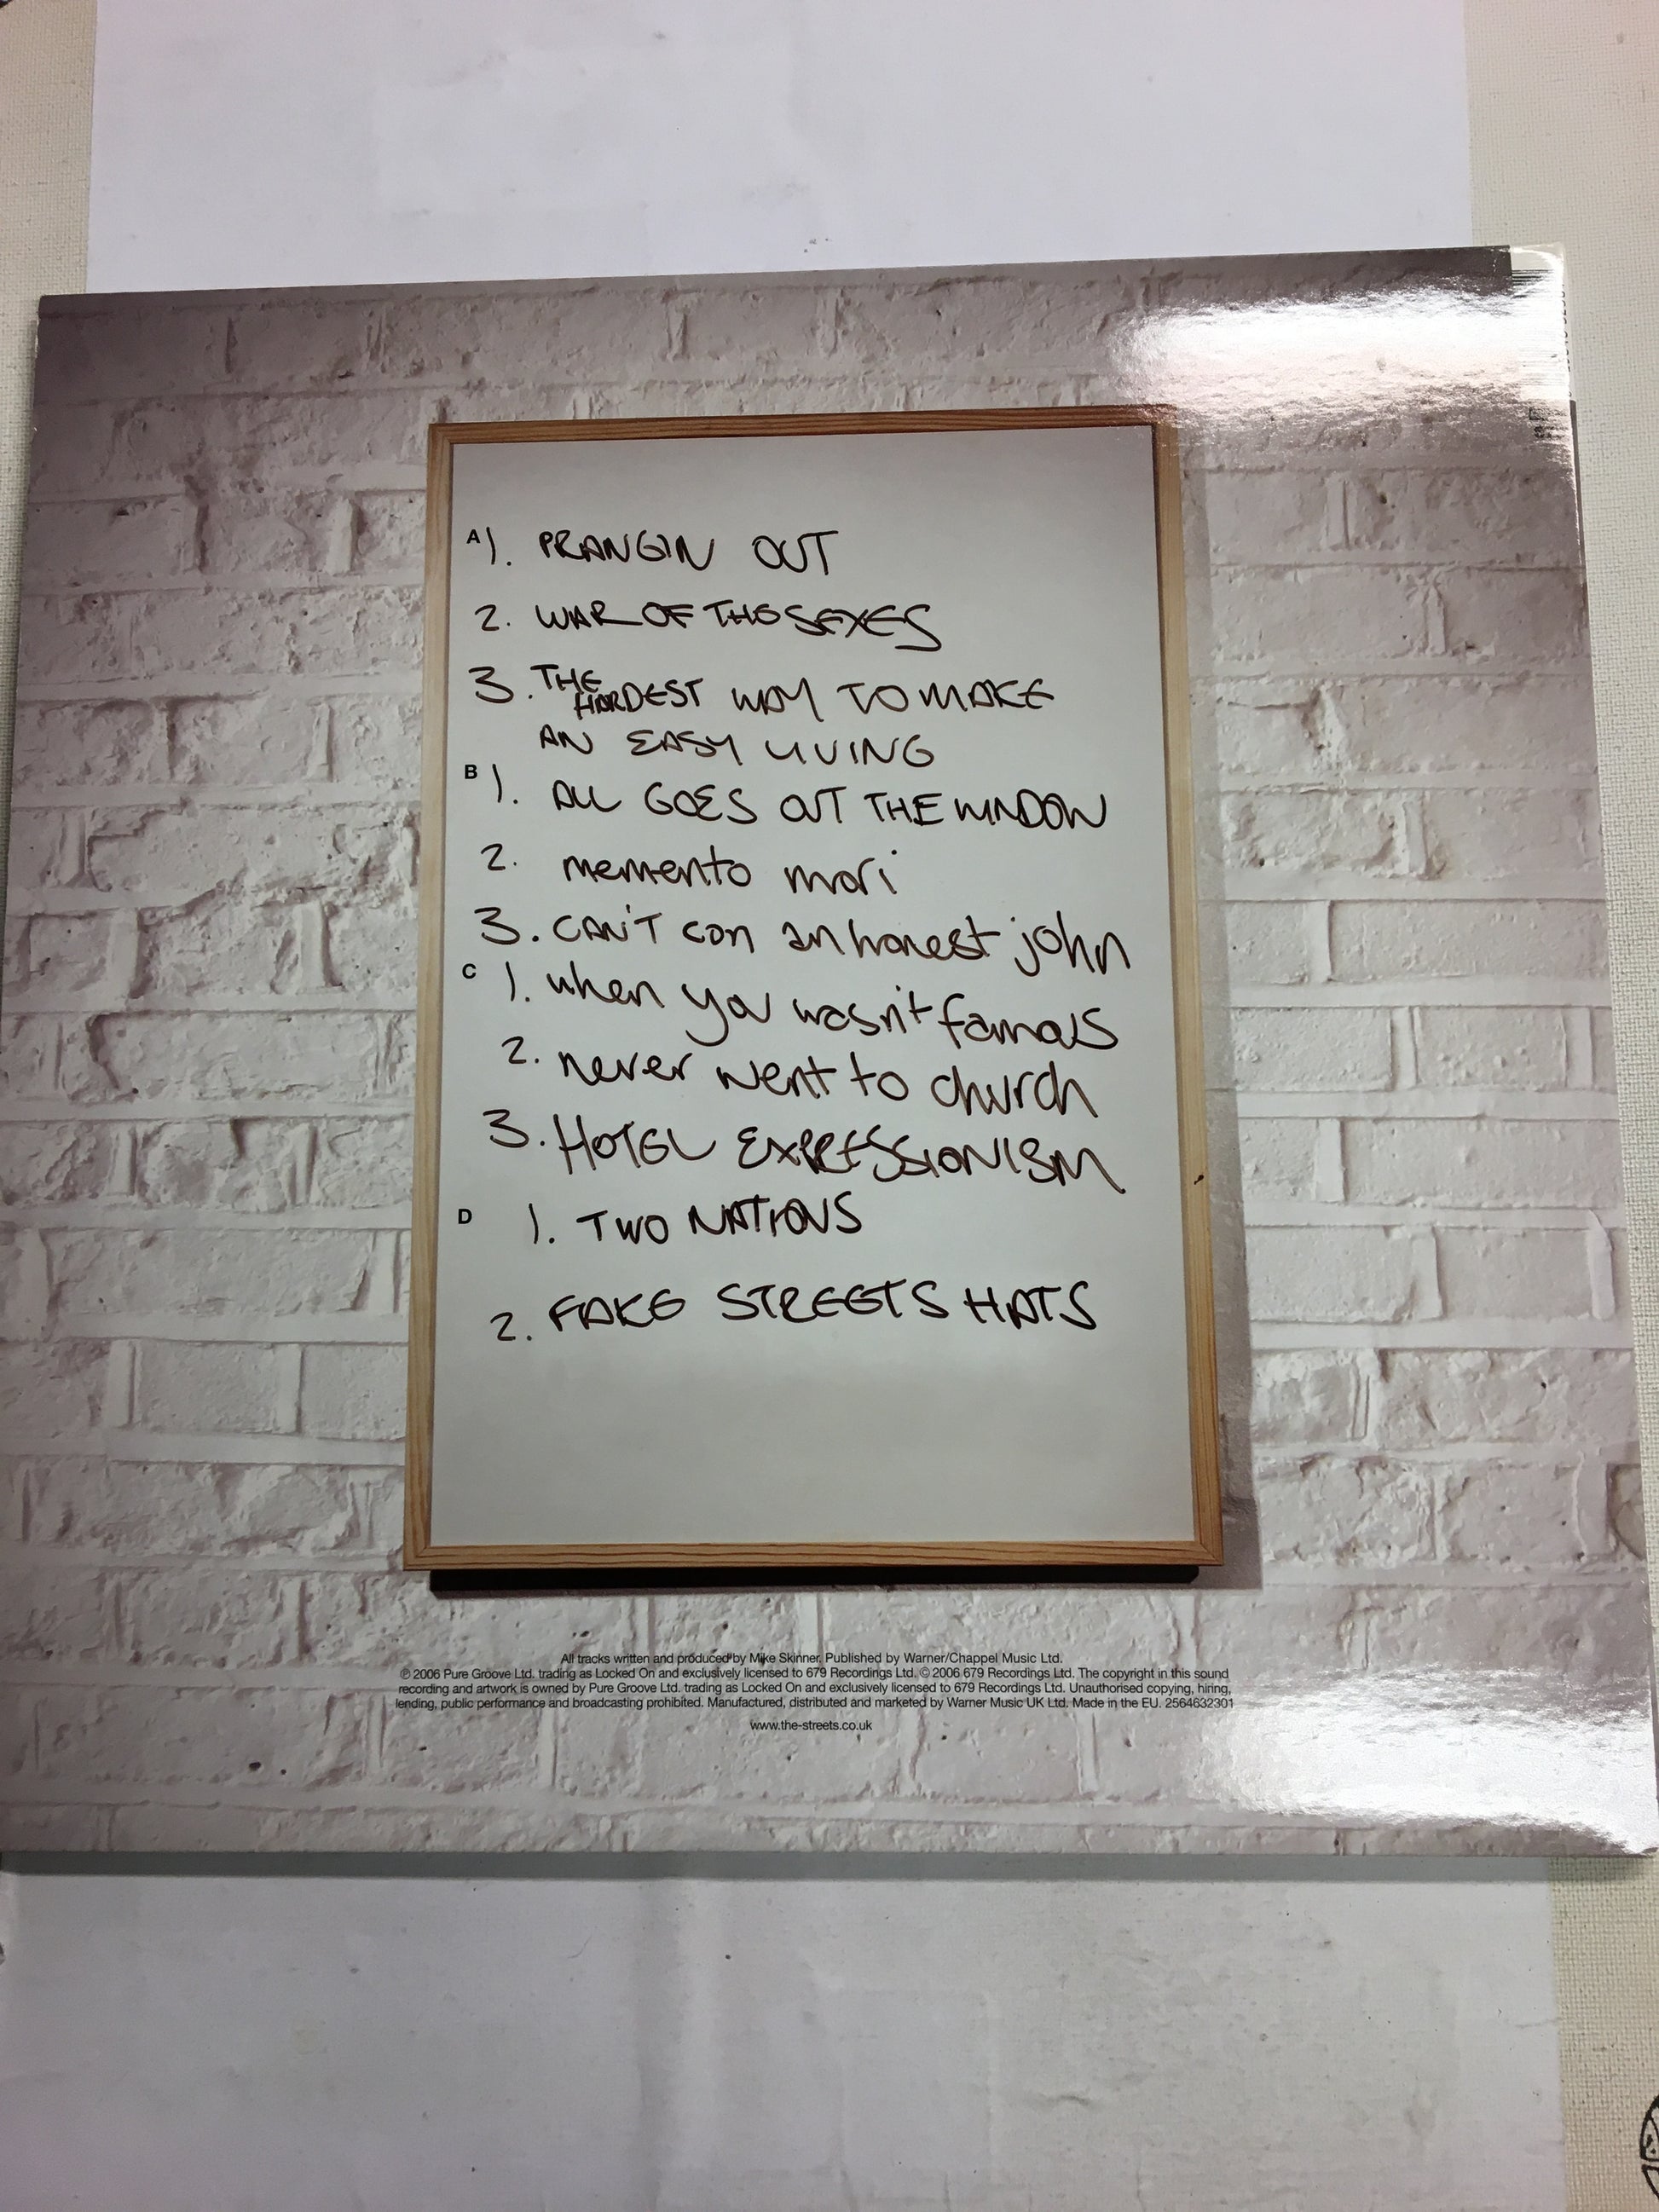 A 1. PRANGIN OUT
2. WAR OF THE SEXES
3. THE HARDEST WAY TO MAKE
AN EASY LIVING
B 1. ALL GOES OUT THE WINDOW
2. memento mori
3. CAN'T con an honest john
C 1. when you wasn't famous
2. never went to church
3. HOTEL EXPRESSIONISM
D 1. TWO NATIONS
2. FAKE STREETS HATS
All tracks written and produced by Mike Skinner. Published by Warner/Chappel Music Ltd.
℗ 2006 Pure Groove Ltd. trading as Locked On and exclusively licensed to 679 Recordings Ltd. © 2006 679 Recordings Ltd. The copyright in this sound
recording and artwork is owned by Pure Groove Ltd. trading as Locked On and exclusively licensed to 679 Recordings Ltd. Unauthorised copying, hiring,
lending, public performance and broadcasting prohibited. Manufactured, distributed and marketed by Warner Music UK Ltd. Made in the EU. 2564632301
www.the-streets.co.uk